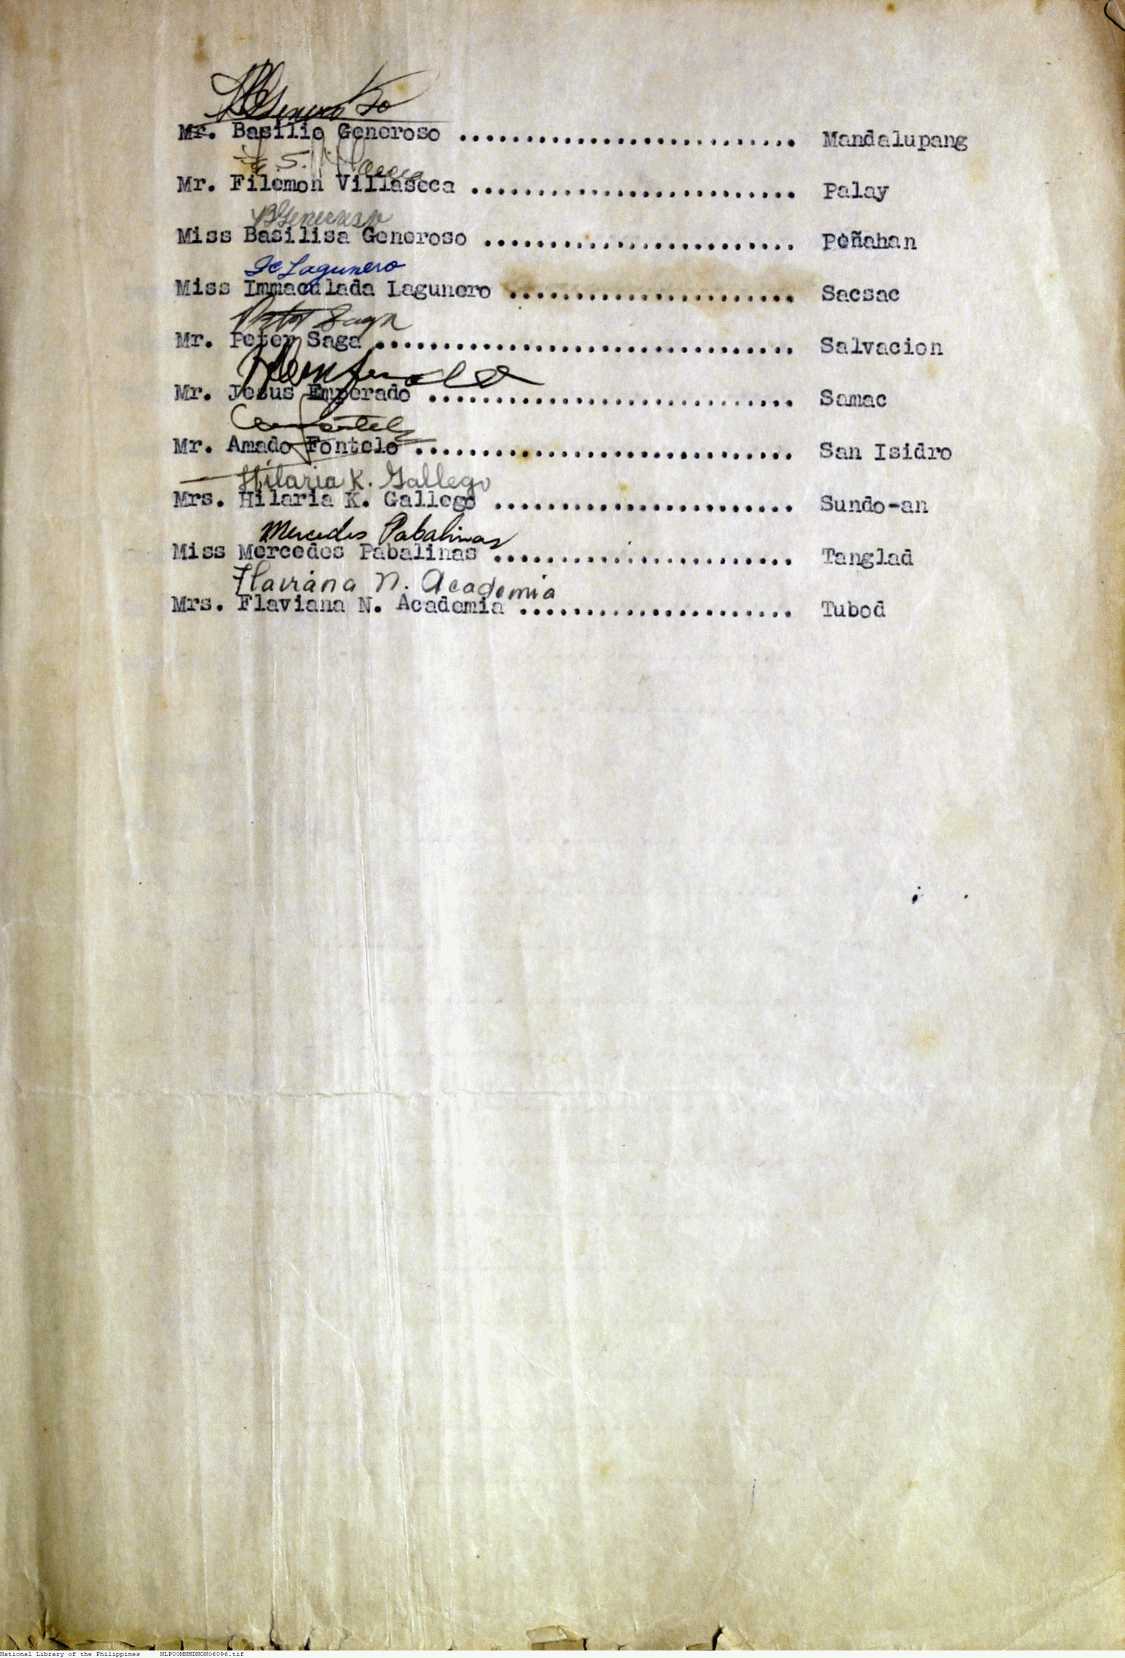 B Generoso
Mr. Basilio Generoso .......................... Mandalupang
Mr. Filemon Villaseca ......................... Palay
B Generoso
Miss Basilisa Generoso ........................ Peñahan
Ic Lagunero
Miss Immaculada Lagunero ...................... Sacsac
Peter Saga
Mr. Peter Saga ................................ Salvacion
Mr. Jesus Emperado ............................ Samac
Mr. Amado Fontelo ............................. San Isidro
Hilaria K. Gallego
Mrs. Hilaria K. Gallego ....................... Sundo-an
Mercedes Pabalinas
Miss Mercedes Pabalinas ....................... Tanglad
Flaviana N. Academia
Mrs. Flaviana N. Academia ..................... Tubod
National Library of the Philippines